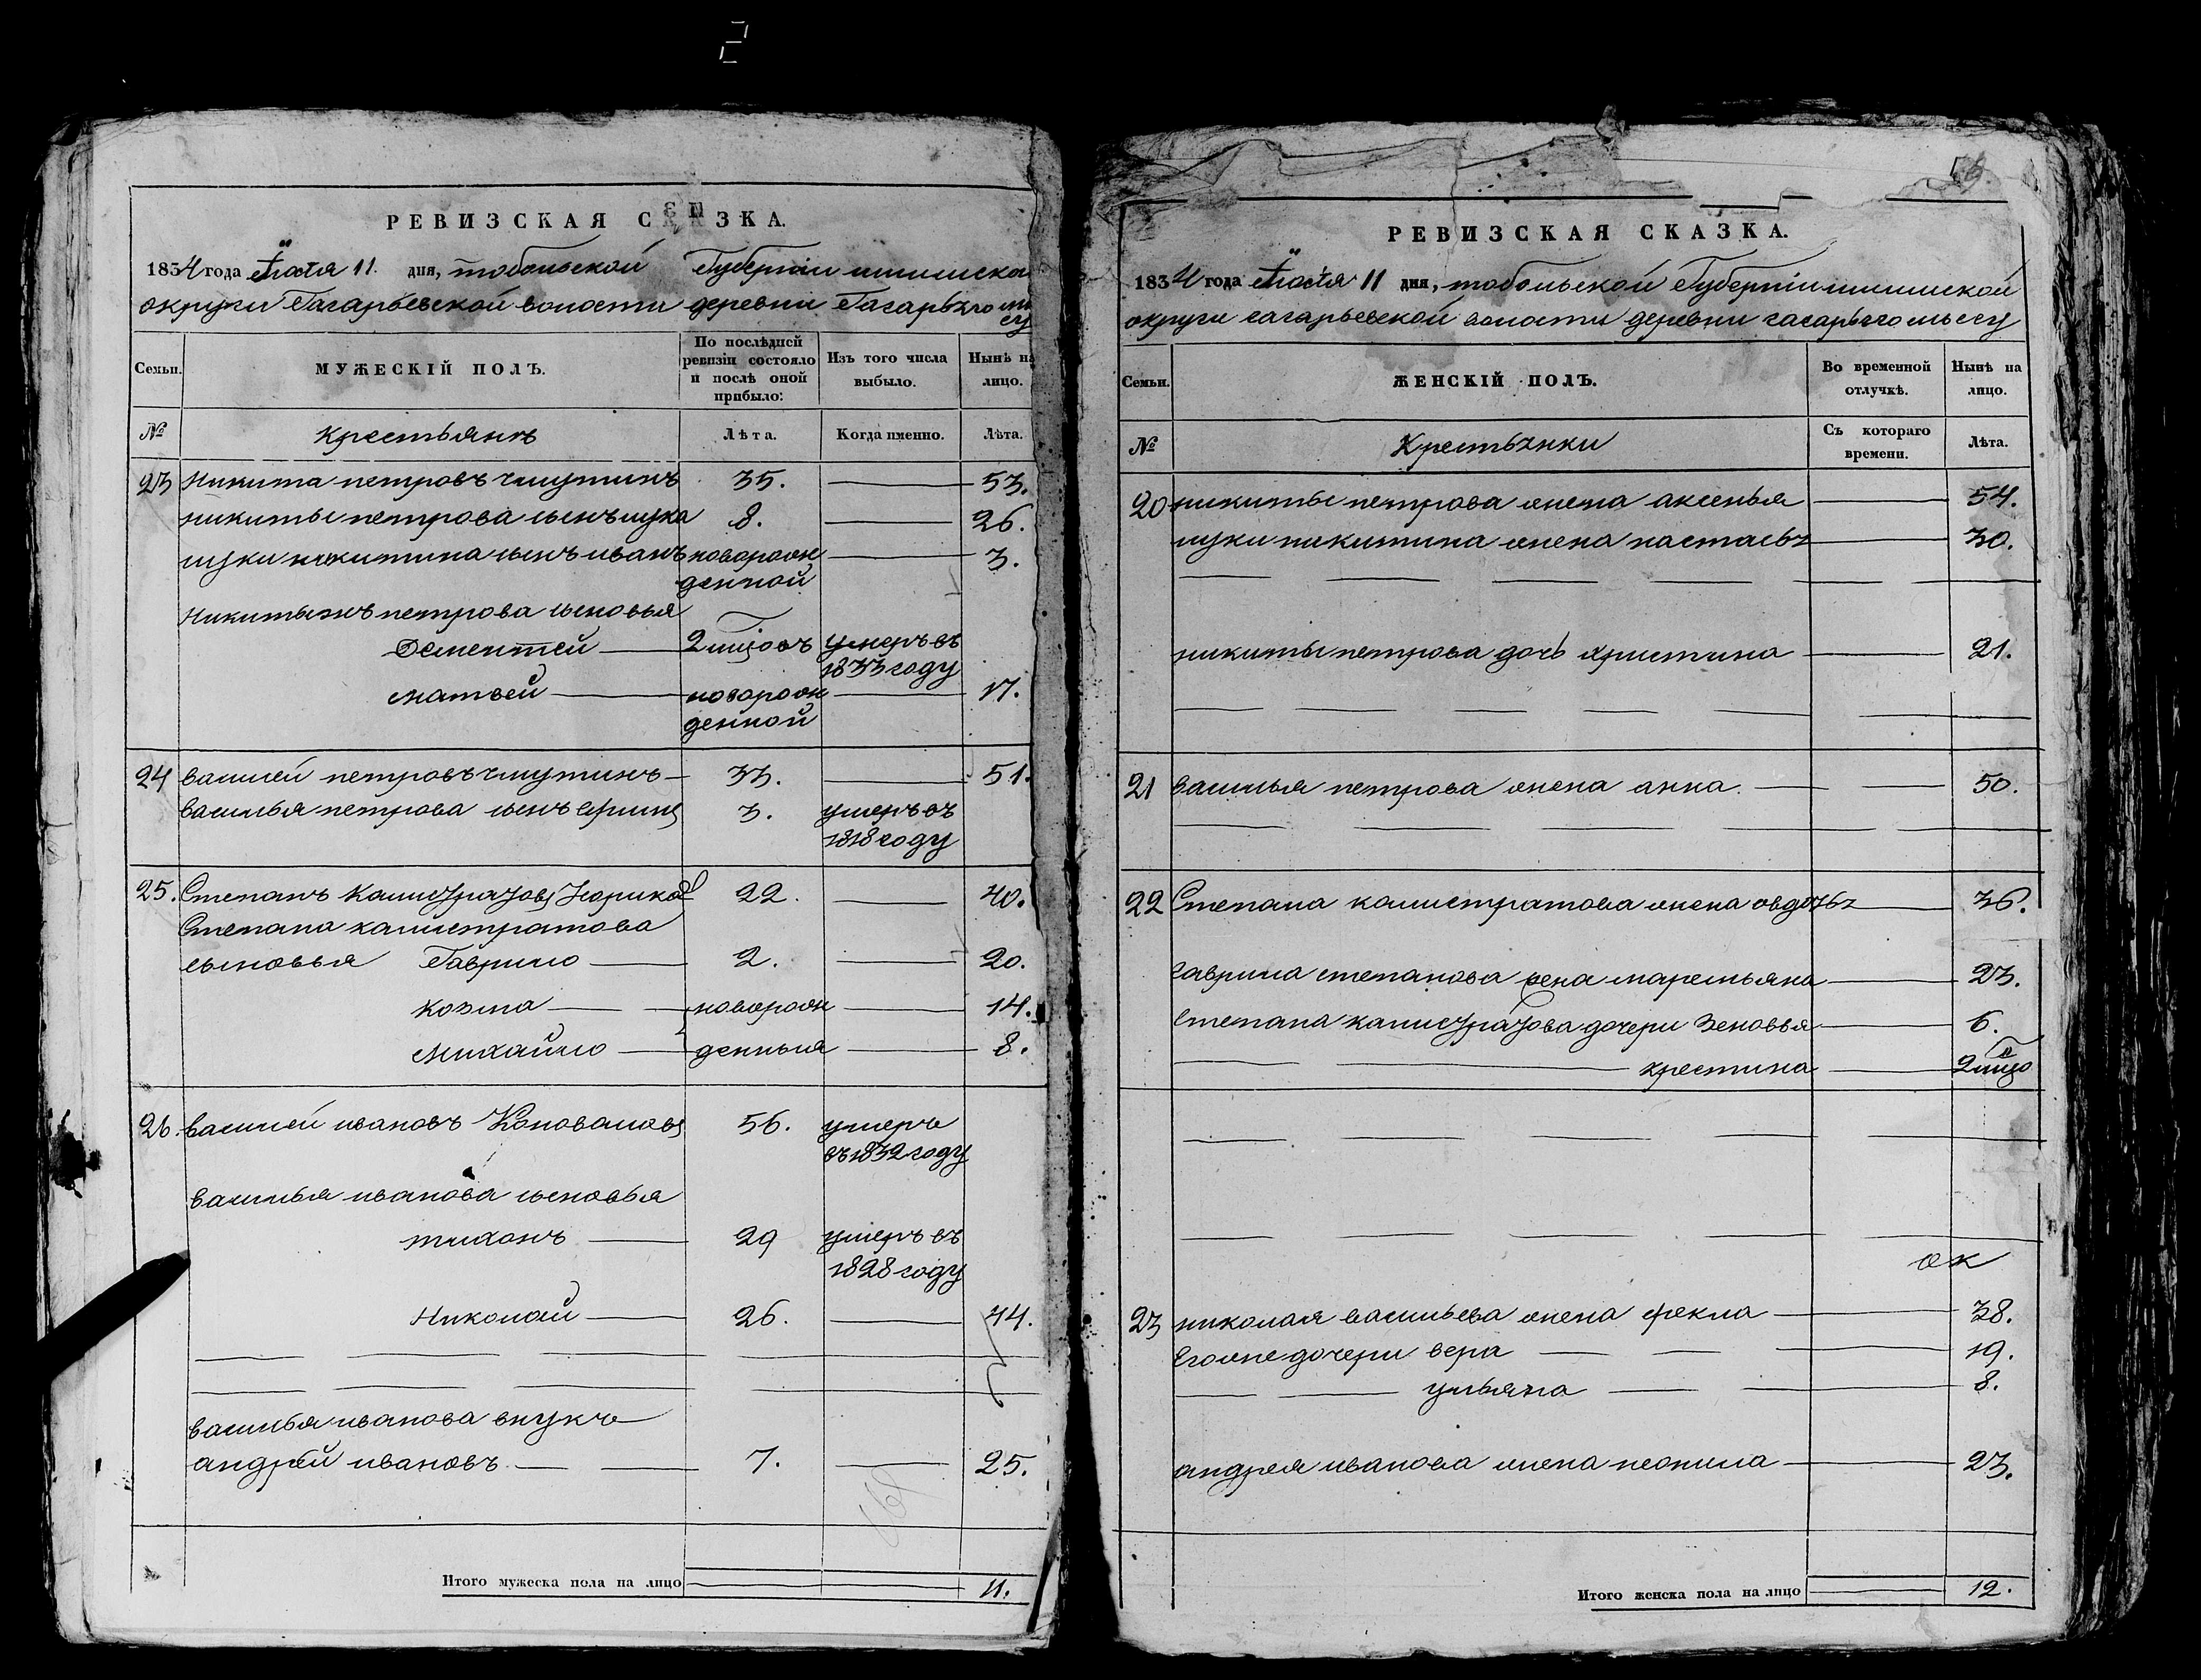 РЕВИЗСКАЯ СКАЗКА.
1834 года Маія 11. дня, тобольской Губерніи ишимской
округи Гагарьевской волости деревни Гагарьего мы
су
Семьи.
МУЖЕСКІЙ ПОЛЪ.
По послѣдней
ревизіи состояло
и послѣ оной
прибыло:
Изъ того числа
выбыло.
Нынѣ на
лицо.
№
крестьянъ
Лѣта.
Когда именно.
Лѣта.
23 Никита петровъ 35. 53.
никиты петрова сынъ лука 8. 26.
луки никитина сынъ иванъ новорож 3.
денной
Никитыжъ петрова сыновья
Дементей 2 мцовъ умеръ въ
1833 году
матвей новорож 17.
денной
24 василей петровъ 33. 51.
василья петрова сынъ 3. умеръ въ
1818 году
25. Степанъ Калистратовъ 22. 40.
Степана калистратова
сыновья Гаврило 2. 20.
козма новорож 14.
михайло денныя 8.
26. василей ивановъ Коноваловъ 56. умеръ
въ 1832 году
василья иванова сыновья
тихонъ 29 умеръ въ
1828 году
Николай 26. 44.
василья иванова внукъ
андрей ивановъ 7. 25.
Итого мужеска пола на лицо 11.
РЕВИЗСКАЯ СКАЗКА.
1834 года Маія 11 дня, тобольской Губерніи ишимской
округи гагарьевской волости деревни гагарьего мысу
Семьи.
ЖЕНСКІЙ ПОЛЪ.
Во временной
отлучкѣ.
Нынѣ на
лицо.
№
Крестьянки
Съ котораго
времени.
Лѣта.
20 никиты петрова жена аксенья 54.
луки никитина жена настасья 30.
никиты петрова дочь христина 21.
21 василья петрова жена анна. 50.
22 Степана калистратова жена овдотья 36.
гаврила степанова жена маремьяна 23.
степана калистратова дочери Зеновья 6.
хрестина 2 мцо
23 николая васильева жена фекла 38.
Егожне дочери вера 19.
ульяна 8.
андрея иванова жена неонила 23.
Итого женска пола на лицо 12.